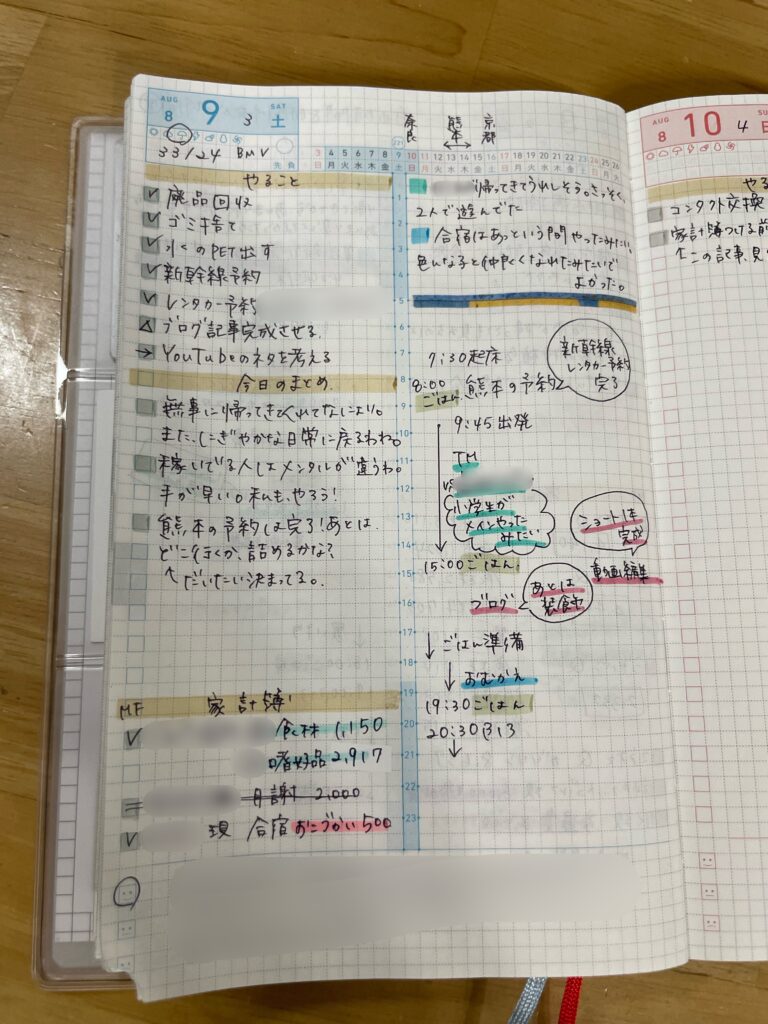 AUG 8 9 3 SAT 土
33/24 BMV
先負
奈良 熊本 京都
3 4 5 6 7 8 9 10 11 12 13 14 15 16 17 18 19 20 21 22 23 24 25 26
日 月 火 水 木 金 土 日 月 火 水 木 金 土 日 月 火 水 木 金 土 日 月 火
やること
廃品回収
ゴミ捨て
水くのPET出す
新幹線予約
レンタカー予約
ブログ記事完成させる
YouTubeのネタを考える
今日のまとめ
無事に帰ってきてくれてなにより。
また、にぎやかな日常に戻るわね。
稼いでる人はメンタルが違うわ。
手が早い。私も、やろう!
熊本の予約は完了!あとは
どこ行くか、詰めるかな?
↑だいたい決まってる。
MF 家計簿
食材 1,150
嗜好品 2,917
月謝 2,000
現 合宿 おこづかい 500
帰ってきてうれしそう。さっそく、
2人で遊んでた
合宿はあっという間やったみたい。
色んな子と仲良くなれたみたいで
よかった。
1
2
3
4
5
6
7
8
9
10
11
12
13
14
15
16
17
18
19
20
21
22
23
7:30起床
8:00 ごはん 熊本の予約
新幹線レンタカー予約完了
9:45出発
TM
vs
小学生が
メインやった
みたい
15:00ごはん
ショート1本
完成
動画編集
ブログ
あとは
装飾
↓ごはん準備
↓おむかえ
19:30ごはん
20:30フロ
↓
AUG 8 10 4 SU 日
やる
コンタクト交換
家計簿つける前
↑この記事、見